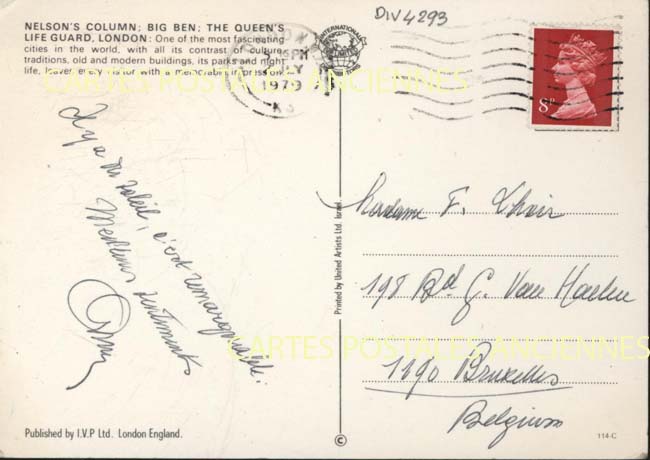 NELSON'S COLUMN; BIG BEN; THE QUEEN'S
LIFE GUARD, LONDON: One of the most fascinating
cities in the world, with all its contrast of culture
traditions, old and modern buildings, its parks and night
life, leaves every visitor with a memorable impression.
DIV4293
PM
1979
8P
CARTES POSTALES ANCIENNES
Il y a du soleil, c'est remarquable!
Meilleurs sentiments
Madame F.
198 Bd. G. Van Haelen
1190 Bruxelles
Belgium
CARTES POSTALES ANCIENNES
Printed by United Artists Ltd. Israel
Published by I.V.P Ltd. London England.
©
114-C